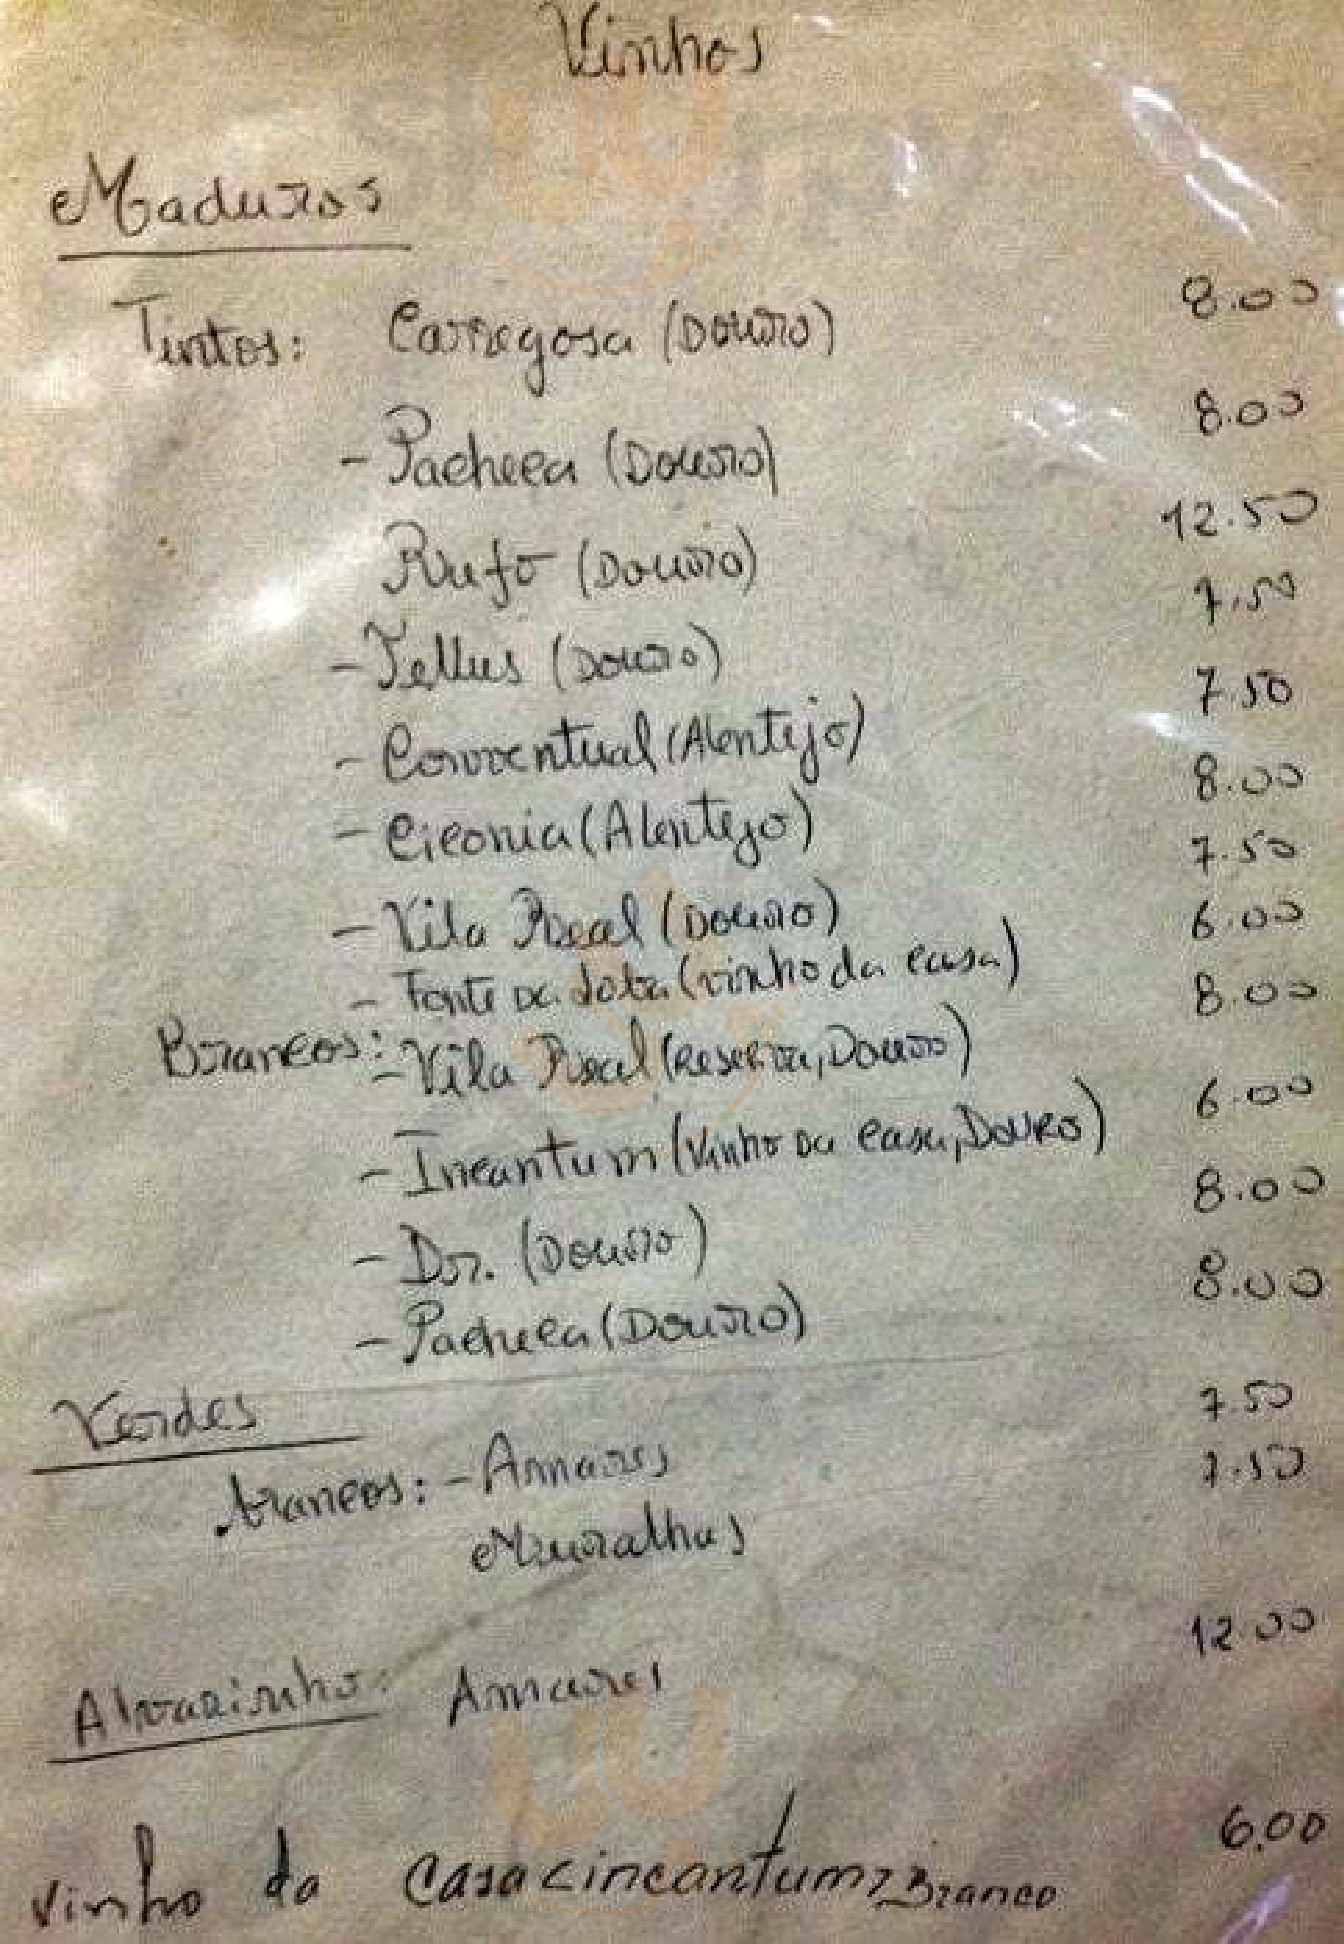 Vinhos
Maduros
Tintos: Carregosa (Douro) 8.00
- Pacheca (Douro) 8.00
Rufo (Douro) 12.50
- Tellus (Douro) 7.50
- Conventual (Alentejo) 7.50
- Ciconia (Alentejo) 8.00
- Vila Real (Douro) 7.50
- Fonte da (vinho da casa) 6.00
Brancos: - Vila Real (Reserva, Douro) 8.00
- Incantum (Vinho da Casa, Douro) 6.00
- Dr. (Douro) 8.00
- Pacheca (Douro) 8.00
Verdes
brancos: - Amares 7.50
Muralhas 7.50
Alvarinho: Amares 12.00
Vinho da Casa <incantum> Branco 6.00